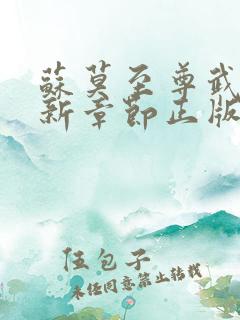 蘇莫至尊武
新章節正版
伍包子
未经同意禁止转载